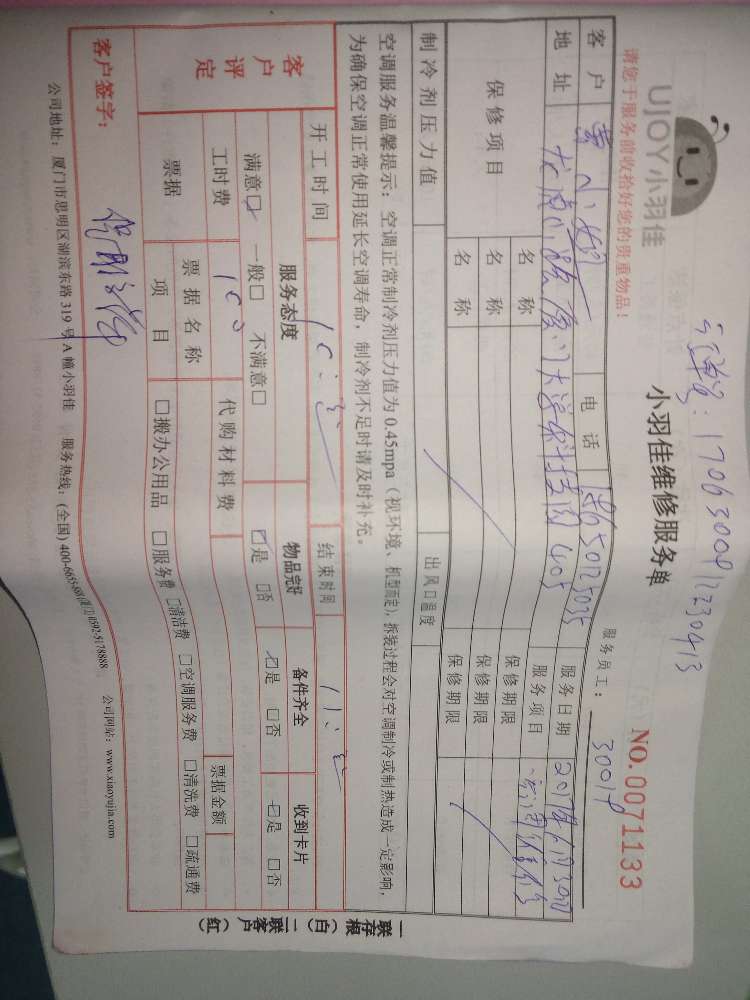 订单号：17063009112230413
UJOY小羽佳
小羽佳维修服务单
NO.0071133
请您于服务前收拾好您的贵重物品！
服务员工：
客户 电话 服务日期
地址 服务项目
保修项目 名称 保修期限
名称 保修期限
名称 保修期限
制冷剂压力值 出风口温度
空调服务温馨提示：空调正常制冷剂压力值为0.45mpa（视环境、机型而定），拆装过程会对空调制冷或制热造成一定影响，
为确保空调正常使用延长空调寿命，制冷剂不足时请及时补充。
客户评定
开工时间 结束时间
服务态度 物品完好 备件齐全 收到卡片
满意☑ 一般□ 不满意□ ☑是 □否 ☑是 □否 ☑是 □否
工时费 100 代购材料费
票据 票据名称 票据金额
项目 □搬办公用品 □服务费 □清洁费 □空调服务费 □清洗费 □疏通费
客户签字：
公司地址：厦门市思明区湖滨东路319号A幢小羽佳 服务热线：(全国) 400-6655-681(厦门) 0592-5178888 公司网站：www.xiaoyujia.com
一联存根（白） 一联客户（红）